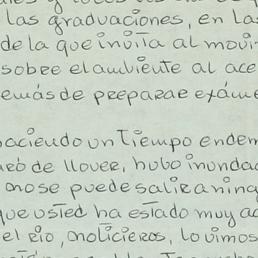 las graduaciones, en las
de la que invita al movi
sobre el audiente al ace
emás de preparar exáme
haciendo un tiempo endem
aró de llover, hubo inundac
nose puede salir a ning
que usted ha estado muy ac
el rio, noticieros, lo vimos